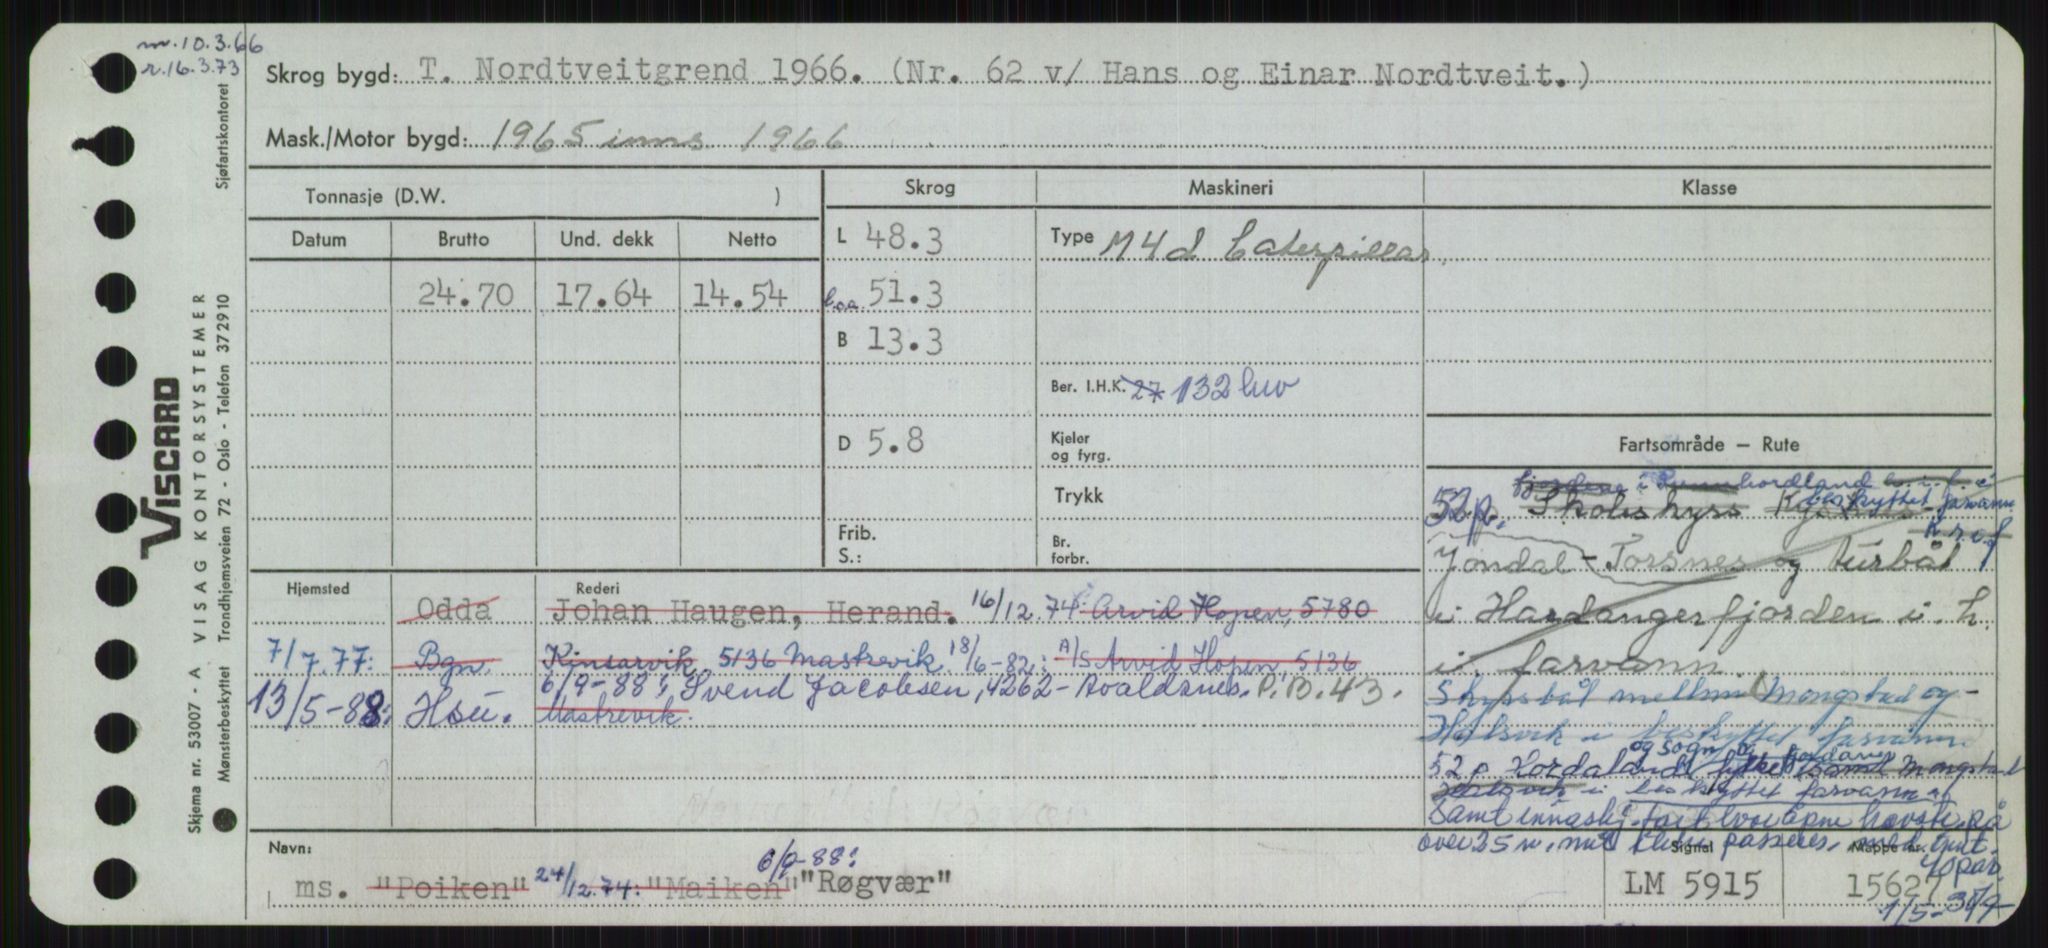 m. 10.3.66
r. 16.3.73
Skrog bygd: T. Nordtveitgrend 1966. (Nr. 62 v/ Hans og Einar Nordtveit.)
Mask./Motor bygd: 1965 inns 1966
Tonnasje (D.W. ) Skrog Maskineri Klasse
Datum Brutto Und. dekk Netto L 48.3 Type M4d Caterpillar.
24.70 17.64 14.54 l.o.a. 51.3
B 13.3
Ber. I.H.K. 27 132 
D 5.8 Kjeler og fyrg. Fartsområde – Rute
Trykk
Frib. S.:
Br. forbr.
beskyttet farvann
52p. Skoleskyss
Jondal - Torsnes og turbåt
i Hardangerfjorden i. h.
i farvann.
Skyssbåt mellom Mongstad og
i beskyttet farvann
og Sogn og Fjordane
52 p Hordaland fylke samt Mongstad
i beskyttet farvann
Samt
over 25 passeres
40 pas.
1/5-
Hjemsted Rederi
Odda Johan Haugen, Herand. 16/12.74: Arvid Hopen, 5780
7/7.77: Bgn. Kinsarvik 5136 Mastrevik. 18/6-82: A/S Arvid Hopen, 5136
13/5-88: Hsu. Mastrevik. 6/9-88: Svend Jacobsen, 4262 - Avaldsnes. P.B. 43.
Navn: Signal Mappe nr.
ms. "Poiken" 24/12.74: "Maiken" 6/9-88: "Røgvær" LM 5915 15627
VISCARD
VISAG KONTORSYSTEMER
Skjema nr. 53007 - A
Mønsterbeskyttet Trondhjemsveien 72 - Oslo - Telefon 372910
Sjøfartskontoret